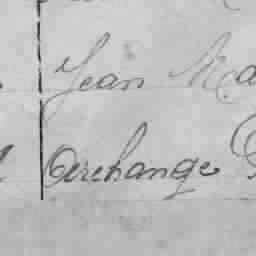 Jean Ma
Archange